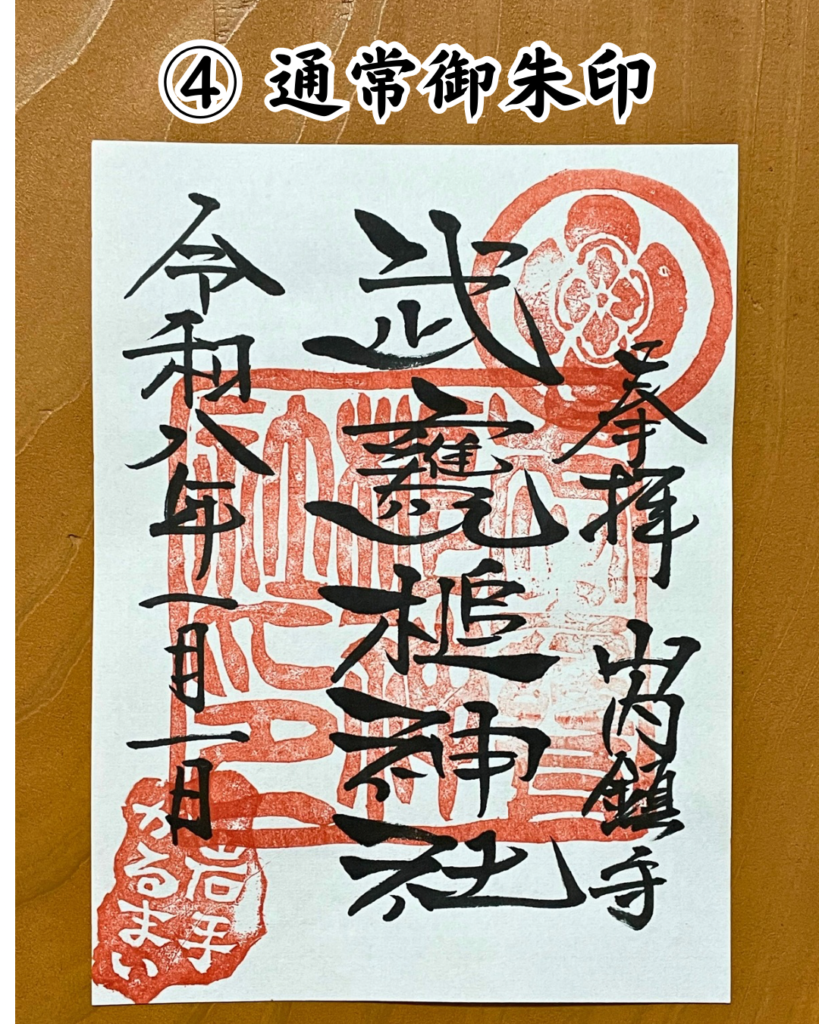 ④ 通常御朱印
奉拝 山内鎮守
武甕槌神社
令和八年一月一日
岩手
かるまい